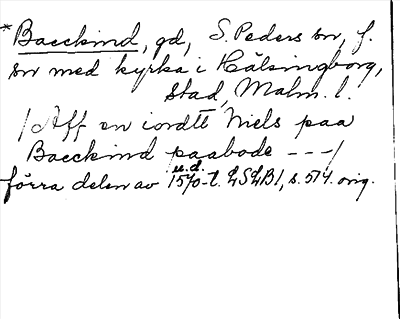 *Baeckind, gd, S. Peders sn, f.
sn med kyrka i Hälsingborg,
stad, Malm. l.
/Aff en iordtt Niels paa
Baeckind paabode ---/
u.d.
förra delen av 1570-t. LSLB1, s. 574. orig.